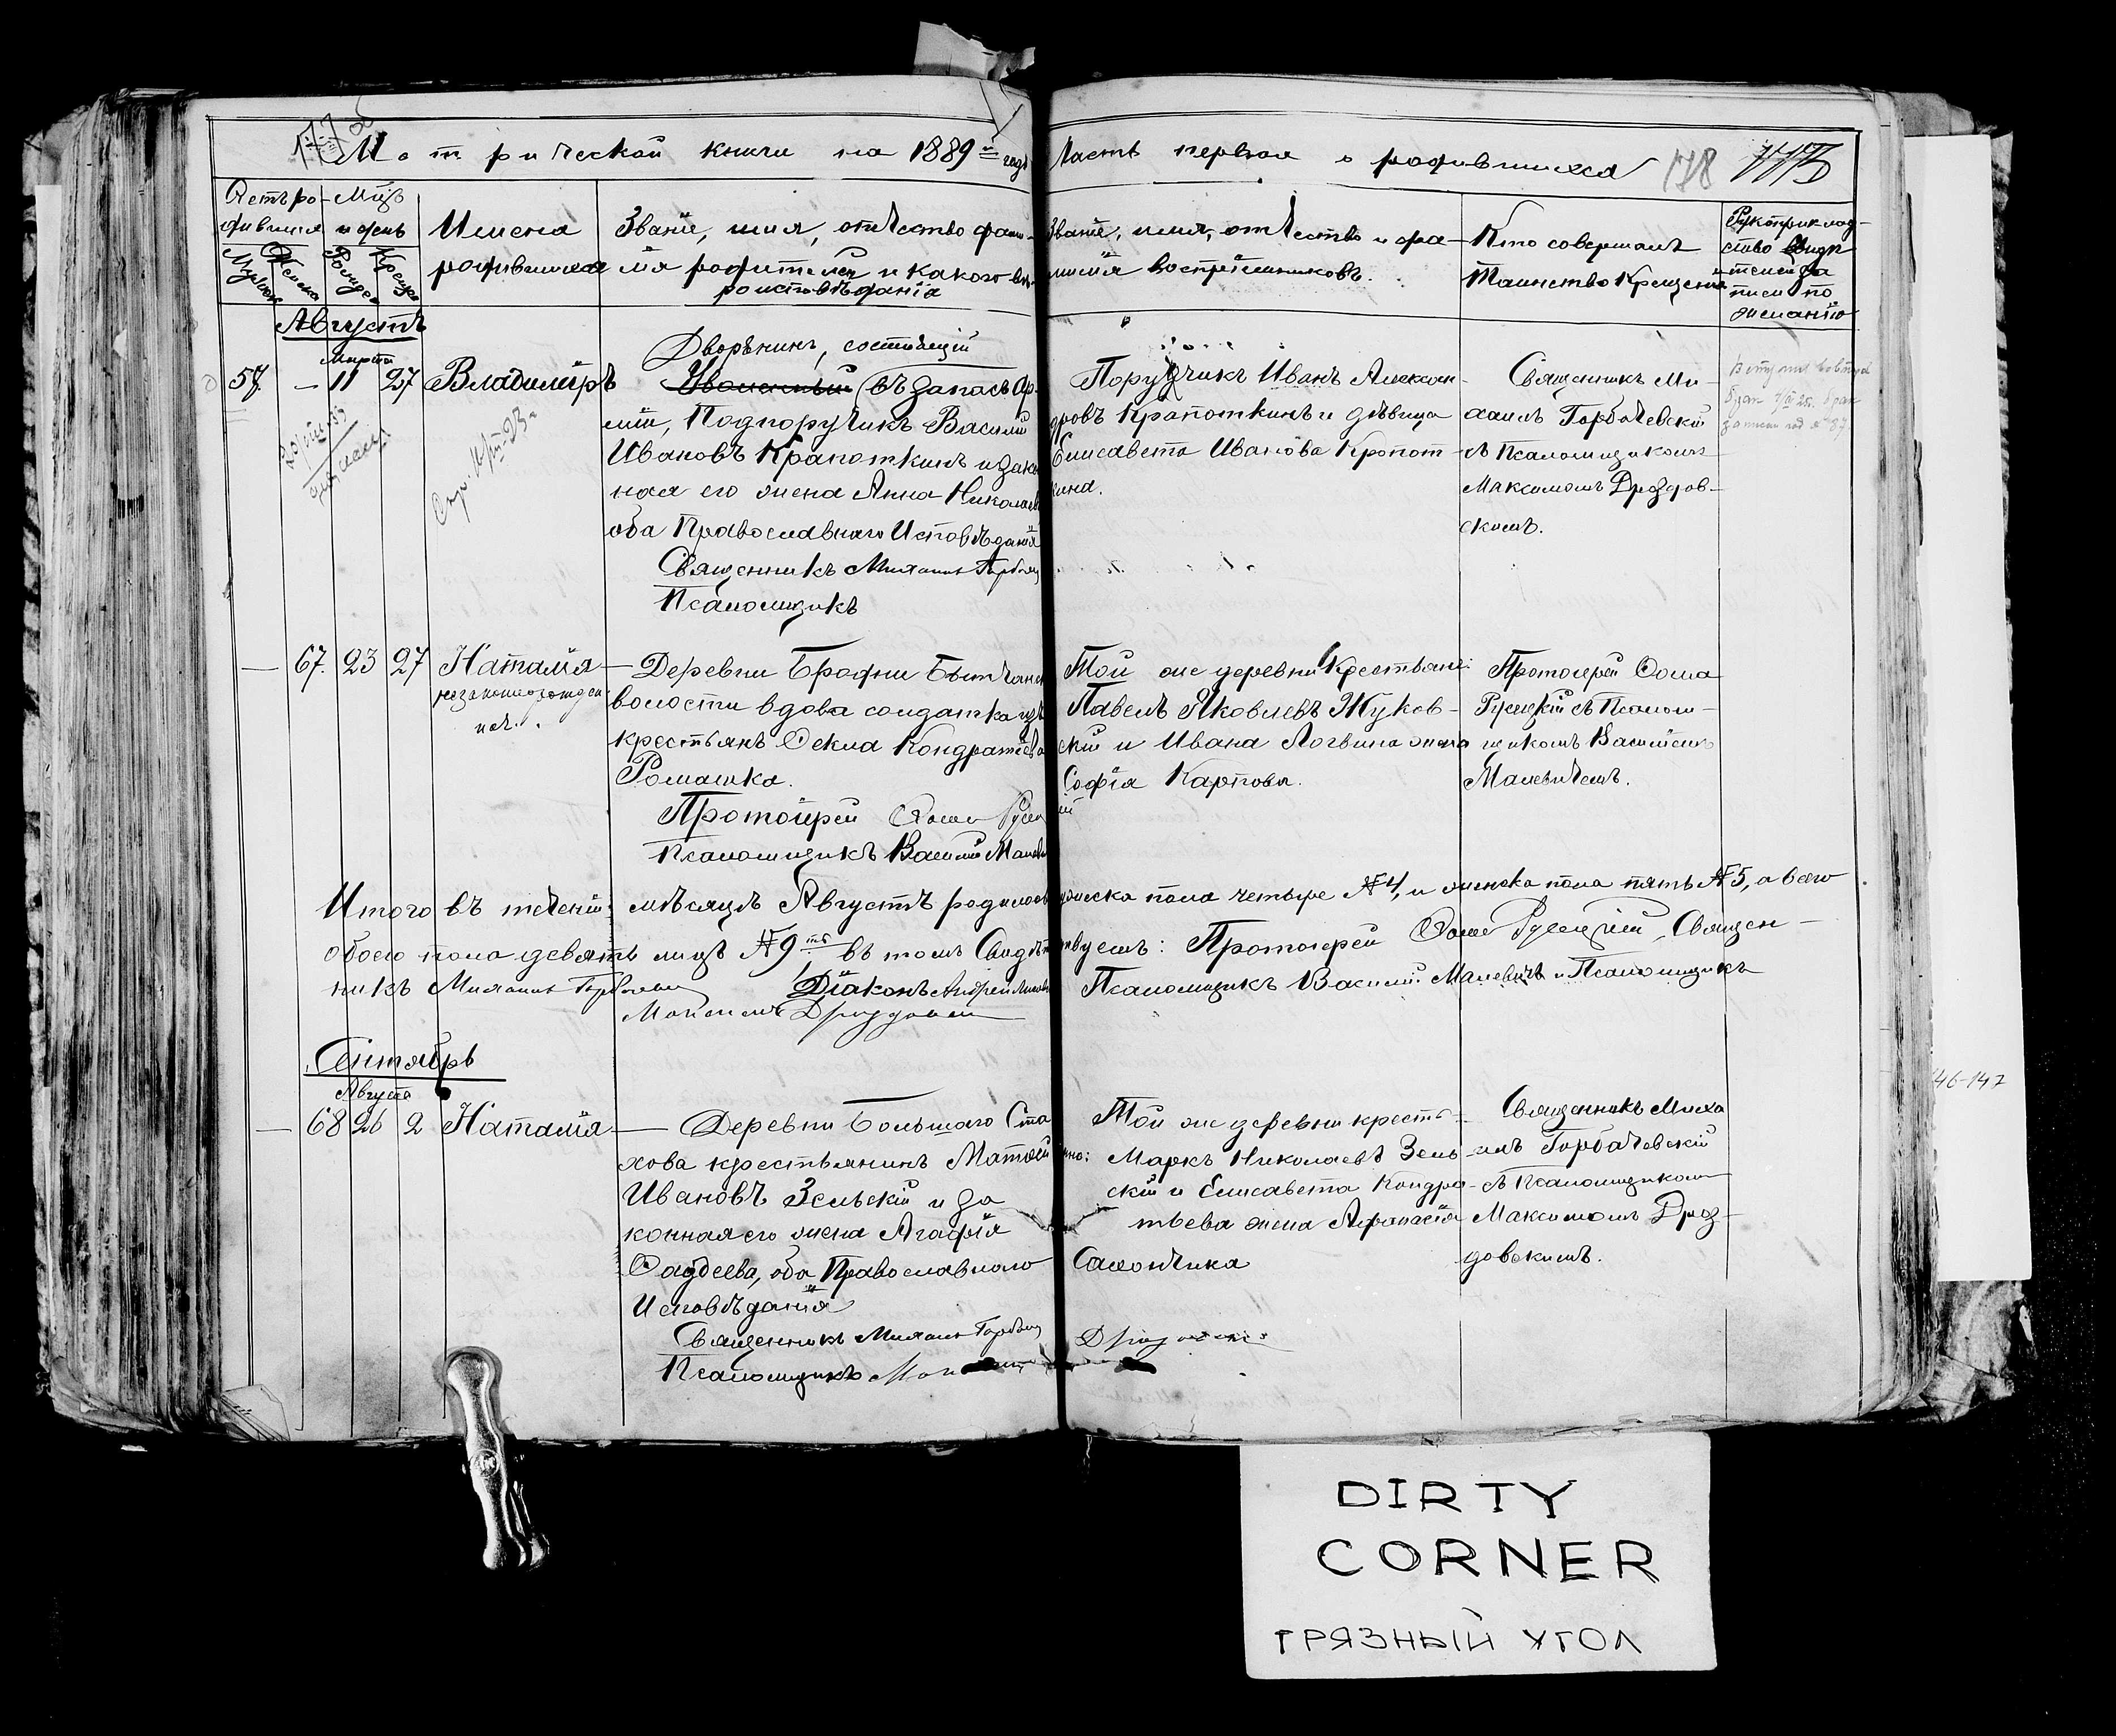 177об
Метрической книги на 1889й годъ Часть первая о родившихся 178
Счетъ ро-
дившихся
Мужеска
Женска
Мцъ
и день
Рожден
Крещен
Имена
родившихся
Званіе, имя, отчество фами-
лія родителей и какого вѣ-
роисповѣданія
Званіе, имя, отчество и фа-
милія воспріемниковъ.
Кто совершалъ
Таинство Крещенія
Рукоприклад-
ство свидѣ
телей за
писи по
желанію
Августъ
Марта
57 – 11 27 Владиміръ
Дворянинъ, состоящій
въ запасѣ Ар-
міи, Подпоручикъ Василій
Ивановъ Крапоткинъ и закон
ная его жена Анна Николаев
оба Православнаго Исповѣданія
Священникъ Михаилъ Горбачев
Псаломщикъ
Поручикъ Иванъ Алексан-
дровъ Крапоткинъ и дѣвица
Елисавета Иванова Кропот-
кина.
Священникъ Ми-
хаилъ Горбачевскій
съ Псаломщикомъ
Максимомъ Дроздов-
скимъ.
— 67. 23 27 Наталія
незаконнорожден
ная.
Деревни Бродни
волости вдова солдатка изъ
крестьянъ Ѳекла Кондратьева
Ромашка.
Протоіерей Ѳома Русец
Псаломщикъ Василій Малеви
Той же деревни Крестьяне:
Павелъ Яковлевъ Жуков-
скій и Ивана Логвина жена
Софія Карпова.
Протоіерей Ѳома
Русецкій съ Псалом-
щикомъ Василіемъ
Малевичемъ.
Итого въ теченіи мѣсяцѣ Августѣ родилось мужеска пола четыре №4, и женска пола пять №5, а всего
обоего пола девять лицъ №9ть въ томъ Свидѣтельствуемъ: Протоіерей Ѳома Русецкій, Священ-
никъ Михаилъ Горбачевскій Діаконъ Андрей Псаломщикъ Василій Малевичъ и Псаломщикъ
Максимъ Дроздовскій
Сентябрь
Августа
— 68 26 2 Наталія
Деревни Большаго Ста
хова крестьянинъ Матѳей
Ивановъ Зельскій и за
конная его жена Агафія
Ѳаддеева, оба Православнаго
Исповѣданія
Священникъ Михаилъ Горбачев
Псаломщикъ Максимъ Дроздовскій
Той же деревни кресть-
яне: Маркъ Николаевъ Зель-
скій и Елисавета Кондра-
тьева жена Аѳанасія
Самончика
Священникъ Миха
илъ Горбачевскій
съ Псаломщикомъ
Максимомъ Дроз-
довскимъ.
46-147
DIRTY
CORNER
ГРЯЗНЫЙ УГОЛ